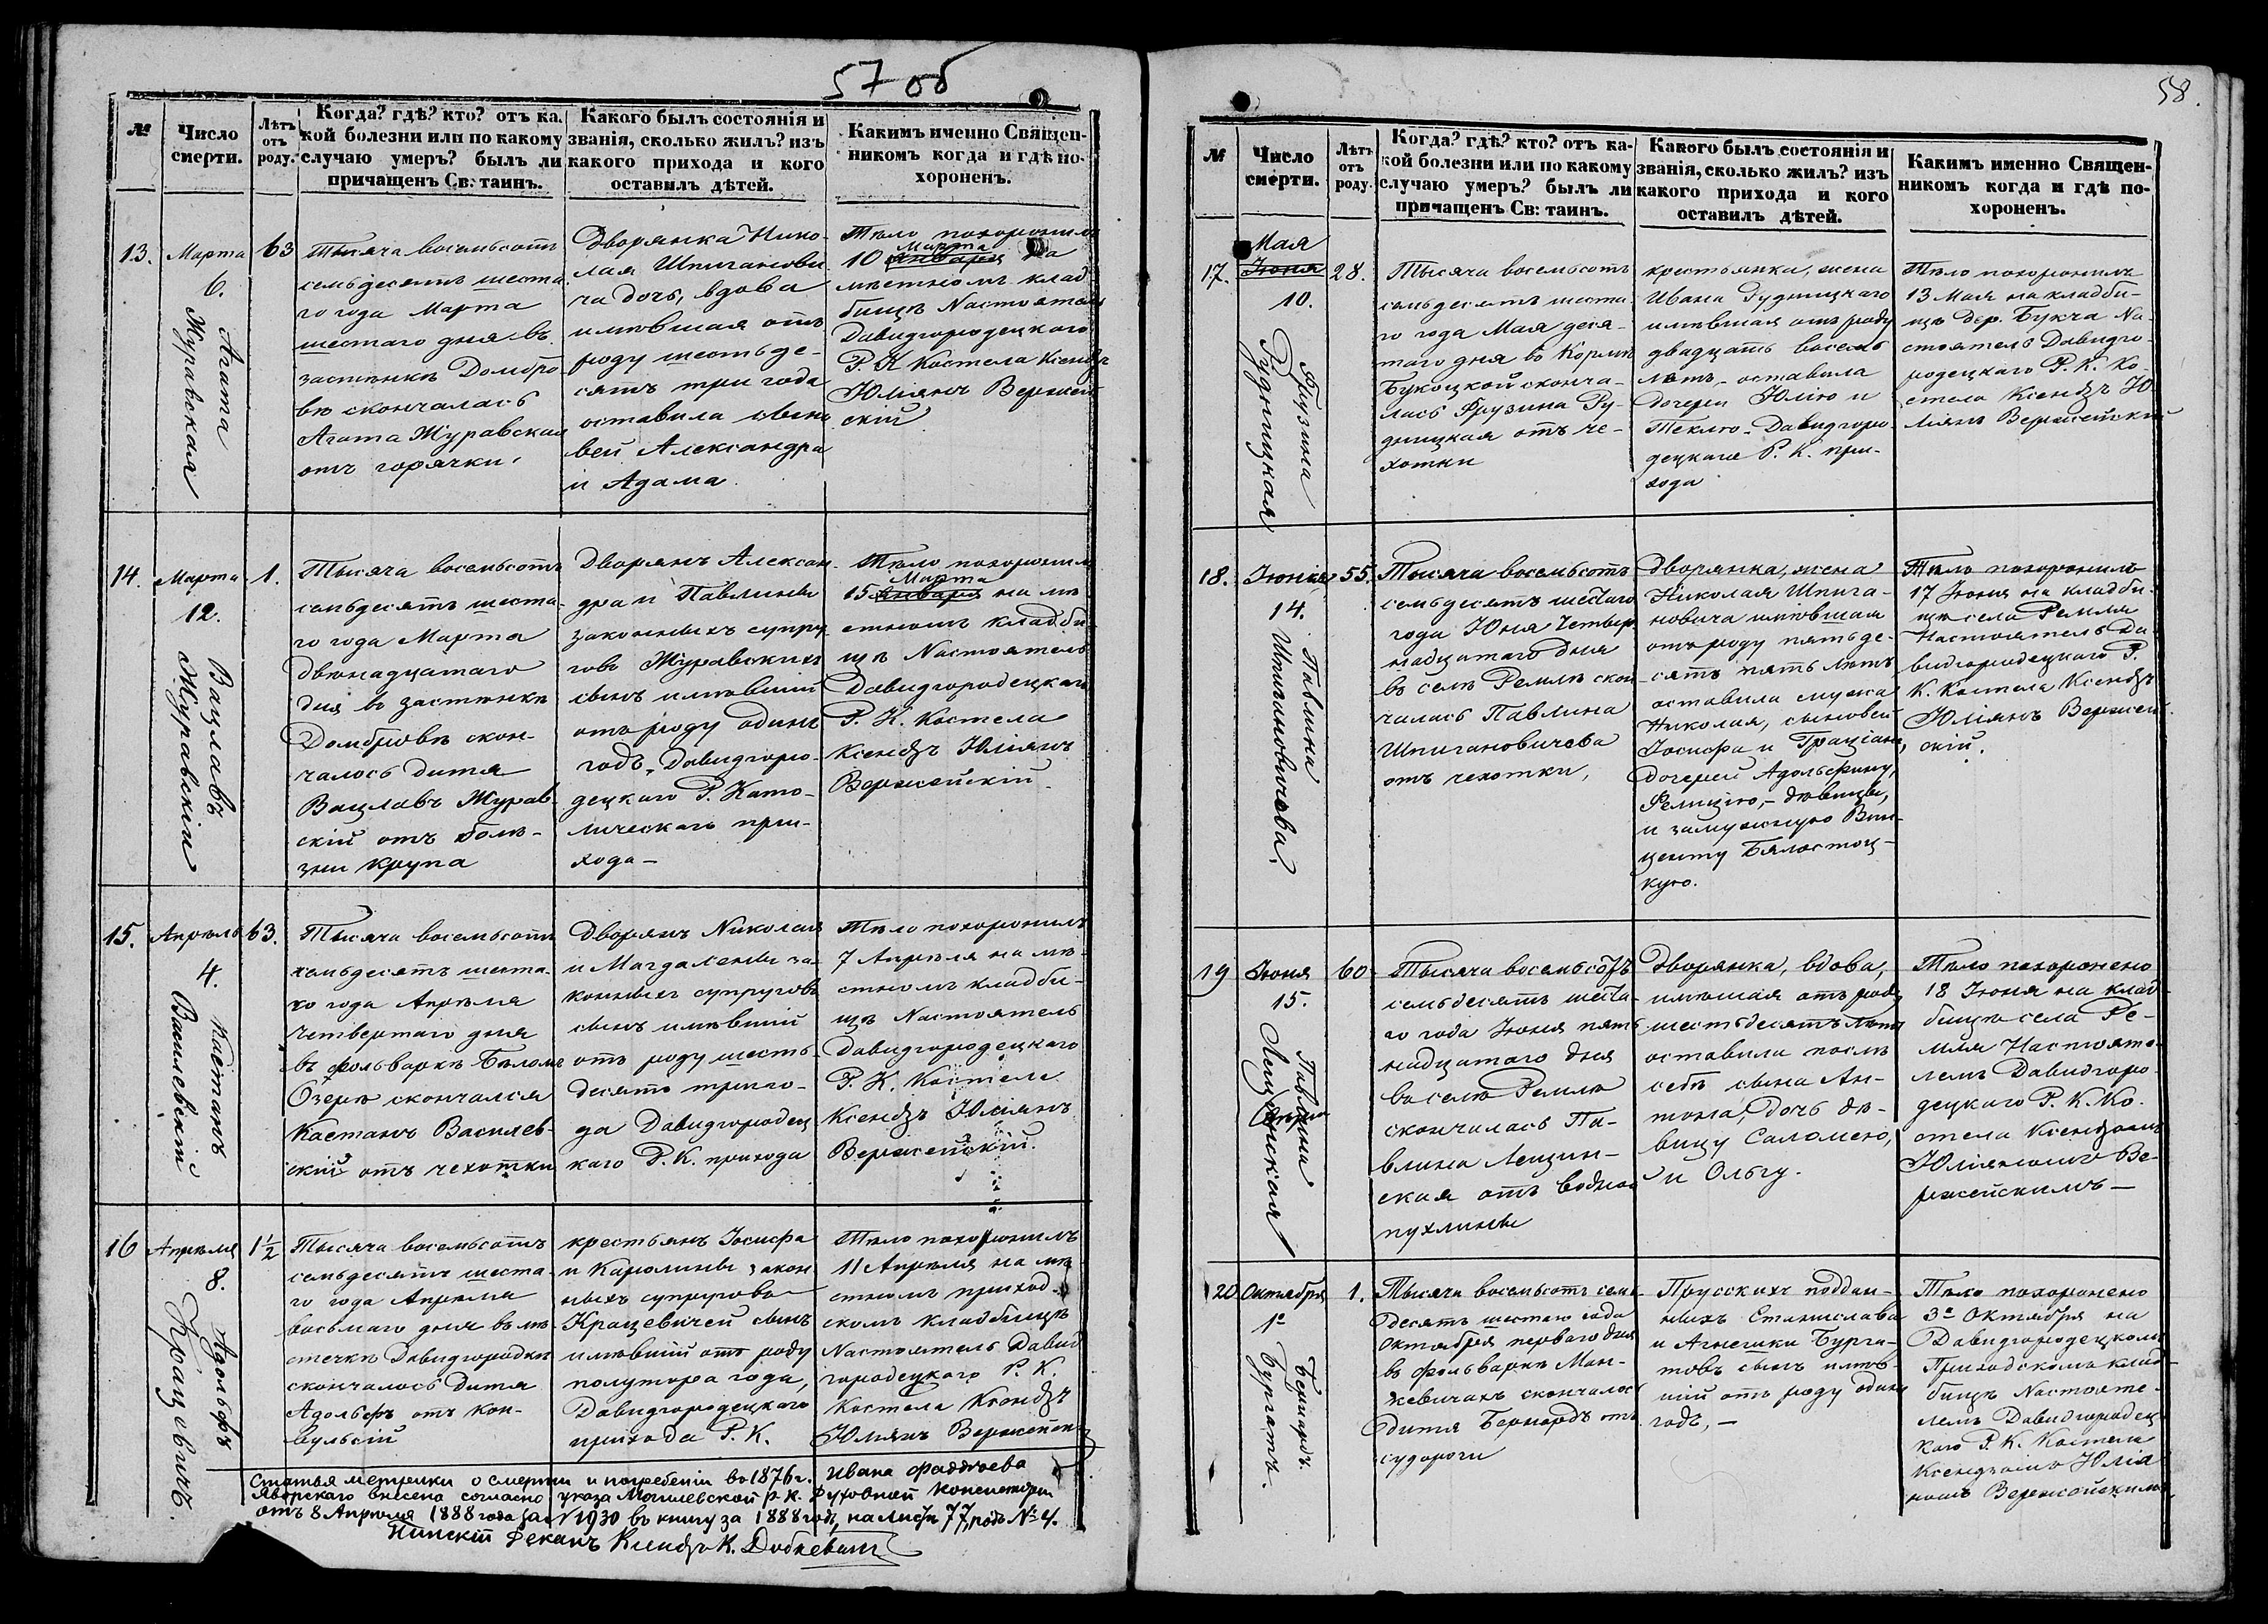 57 об
№
Число
смерти.
Лѣтъ
отъ
роду.
Когда? гдѣ? кто? отъ ка-
кой болезни или по какому
случаю умеръ? былъ ли
причащенъ Св: таинъ.
Какого былъ состоянія и
званія, сколько жилъ? изъ
какого прихода и кого
оставилъ дѣтей.
Какимъ именно Священ-
никомъ когда и гдѣ по-
хороненъ.
13.
Марта
6.
Агата
Журавская
63
Тысяча восемьсотъ
семьдесятъ шеста
го года Марта
шестаго дня въ
застѣнкѣ Домбро
вѣ скончалась
Агата Журавская
отъ горячки.
Дворянка Нико-
лая Шпиганови
ча дочь, вдова
имѣвшая отъ
роду шестьде-
сятъ три года
оставила сыно
вей Александра
и Адама
Тѣло похоронилъ
Марта
10 Января на
мѣстномъ клад
бищѣ Настоятель
Давидгородецкаго
Р. К Костела Ксендзъ
Юліянъ Вержей
скій
14.
Марта
12.
Вацлавъ
Журавскій
1.
Тысяча восемьсотъ
семьдесятъ шеста-
го года Марта
двѣнадцатаго
дня въ застѣнкѣ
Домбровѣ скон-
чалось дитя
Вацлавъ Журав-
скій отъ болѣ-
зни крупа
Дворянъ Алексан-
дра и Павлины
законныхъ супру-
говъ Журавскихъ
сынъ имѣвшій
отъ роду одинъ
годъ, Давидгоро-
децкаго Р. Като-
лическаго при-
хода –
Тѣло похоронилъ
Марта
15 Января на мѣ
стномъ кладби-
щѣ Настоятель
Давидгородецкаго
Р. К. Костела
Ксендзъ Юліянъ
Вержейскій
15.
Апрѣля
4.
Каетанъ
Василевскій
63.
Тысяча восемьсотъ
семьдесятъ шеста-
го года Апрѣля
четвертаго дня
въ фольваркѣ Бѣломъ
Озерѣ скончался
Каетанъ Василев-
скій отъ чехотки
Дворянъ Николая
и Магдалены за-
конныхъ супруговъ
сынъ имѣвшій
отъ роду шесть-
десятъ три го-
да Давидгородец
каго Р. К. прихода
Тѣло похоронилъ
7 Апрѣля на мѣ-
стномъ кладби-
щѣ Настоятель
Давидгородецкаго
Р. К. Костела
Ксендзъ Юліянъ
Вержейскій.
16
Апрѣля
8.
Адольфъ
Крацевичъ
1½
Тысяча восемьсотъ
семьдесятъ шеста-
го года Апрѣля
восьмаго дня въ мѣ-
стечкѣ Давидгородкѣ
скончалось дитя
Адольфъ отъ кон-
вульсій
крестьянъ Іосифа
и Каролины закон
ныхъ супруговъ
Крацевичей сынъ
имѣвшій отъ роду
полутора года,
Давидгородецкаго
прихода Р. К.
Тѣло похоронилъ
11 Апрѣля на мѣ
стномъ приход-
скомъ кладбищѣ
Настоятель Давид
городецкаго Р. К.
Костела Ксендзъ
Юліянъ Вержейскій
Статья метрики о смерти и погребеніи въ 1876 г. Ивана Фаддѣева
Яворскаго внесена согласно указа Могилевской р. к. Духовной Консисторіи
отъ 8 Апрѣля 1888 года за № 1930 въ книгу за 1888 годъ, на листѣ 77, подъ № 4.
Пинскій Деканъ Ксендзъ К. Добкевичъ
58.
№
Число
смерти.
Лѣтъ
отъ
роду.
Когда? гдѣ? кто? отъ ка-
кой болезни или по какому
случаю умеръ? былъ ли
причащенъ Св: таинъ.
Какого былъ состоянія и
званія, сколько жилъ? изъ
какого прихода и кого
оставилъ дѣтей.
Какимъ именно Священ-
никомъ когда и гдѣ по-
хороненъ.
17.
Мая
Іюня
10.
Грузина
Рудницкая
28.
Тысяча восемьсотъ
семьдесятъ шеста-
го года Мая деся-
таго дня въ Кормѣ
Букоцкой сконча-
лась Фрузина Ру-
дницкая отъ че-
хотки
крестьянка, жена
Ивана Рудницкаго
имѣвшая отъ роду
двадцать восемь
лѣтъ – оставила
дочерей Юлію и
Теклю – Давидгоро-
децкаго Р. К. при-
хода
Тѣло похоронилъ
13 Мая на кладби-
щѣ дер. Букча На-
стоятель Давидго-
родецкаго Р. К. Ко-
стела Ксендзъ Ю-
ліянъ Вержейскій
18.
Іюня
14.
Павлина
Шпигановичева.
55.
Тысяча восемьсотъ
семьдесятъ шестаго
года Юня Четыр
надцатаго дня
въ селѣ Ремлѣ скон-
чалась Павлина
Шпигановичева
отъ чехотки,
Дворянка, жена
Николая Шпига-
новича имѣвшая
отъ роду пятьде-
сятъ пять лѣтъ
оставила мужа
Николая, сыновей
Іосифа и Граціана,
Дочерей Адольфину,
Фелицію, – дѣвицы,
и замужнюю Вин-
центу Бялостоц-
кую.
Тѣло похоронилъ
17 Іюня на кладби-
щѣ села Ремля
Настоятель Да-
видгородецкаго Р.
К. Костела Ксендзъ
Юліянъ Вержей-
скій.
19
Іюня
15.
Павлина
Лещинская
60
Тысяча восемьсотъ
семьдесятъ шеста-
го года Іюня пят-
надцатаго дня
въ селѣ Ремлѣ
скончалась Па-
влина Лещин-
ская отъ водной
пухлины
Дворянка, вдова,
имѣвшая отъ роду
шестьдесятъ лѣтъ
оставила послѣ
себѣ сына Ан-
тона, дочь дѣ-
вицу Саломею,
и Ольгу.
Тѣло похоронено
18 Іюня на клад
бищѣ села Ре-
мля Настояте-
лемъ Давидгоро-
децкаго Р. К. Ко-
стела Ксендзомъ
Юліяномъ Ве-
ржейскимъ –
20
Октября
1º
Бернардъ.
Бургатъ.
1.
Тысяча восемьсотъ семь
десятъ шестаго года
Октября перваго дня
въ фольваркѣ Ман-
кевичахъ скончалось
дитя Бернардъ отъ
судороги
Прусскихъ поддан-
ныхъ Станислава
и Агнешки Бурга-
товъ сынъ имѣв-
шій отъ роду одинъ
годъ, –
Тѣло похоронено
3º Октября на
Давидгородецкомъ
Приходскомъ клад-
бищѣ Настояте-
лемъ Давидгородец
каго Р. К. Костела
Ксендзомъ Юлія
номъ Вержейскимъ